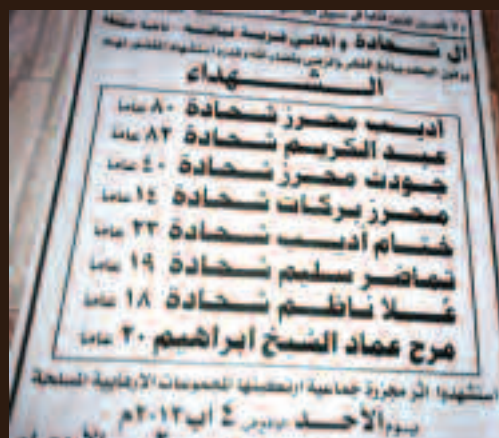 آل شحادة وأهالي قرية
الشهداء
أديب محرز شحادة ٨٠ عاما
عبد الكريم شحادة ٨٢ عاما
جودت محرز شحادة ٤٠ عاما
محرز بركات شحادة ١٤ عاما
ختام أديب شحادة ٢٣ عاما
تماضر سليم شحادة ١٩ عاما
علا ناظم شحادة ١٨ عاما
مرح عماد الشيخ ابراهيم ٢٠ عاما
استشهدوا اثر مجزرة جماعية ارتكبتها المجموعات الارهابية المسلحة
يوم الأحد ٤ آب ٢٠١٣م